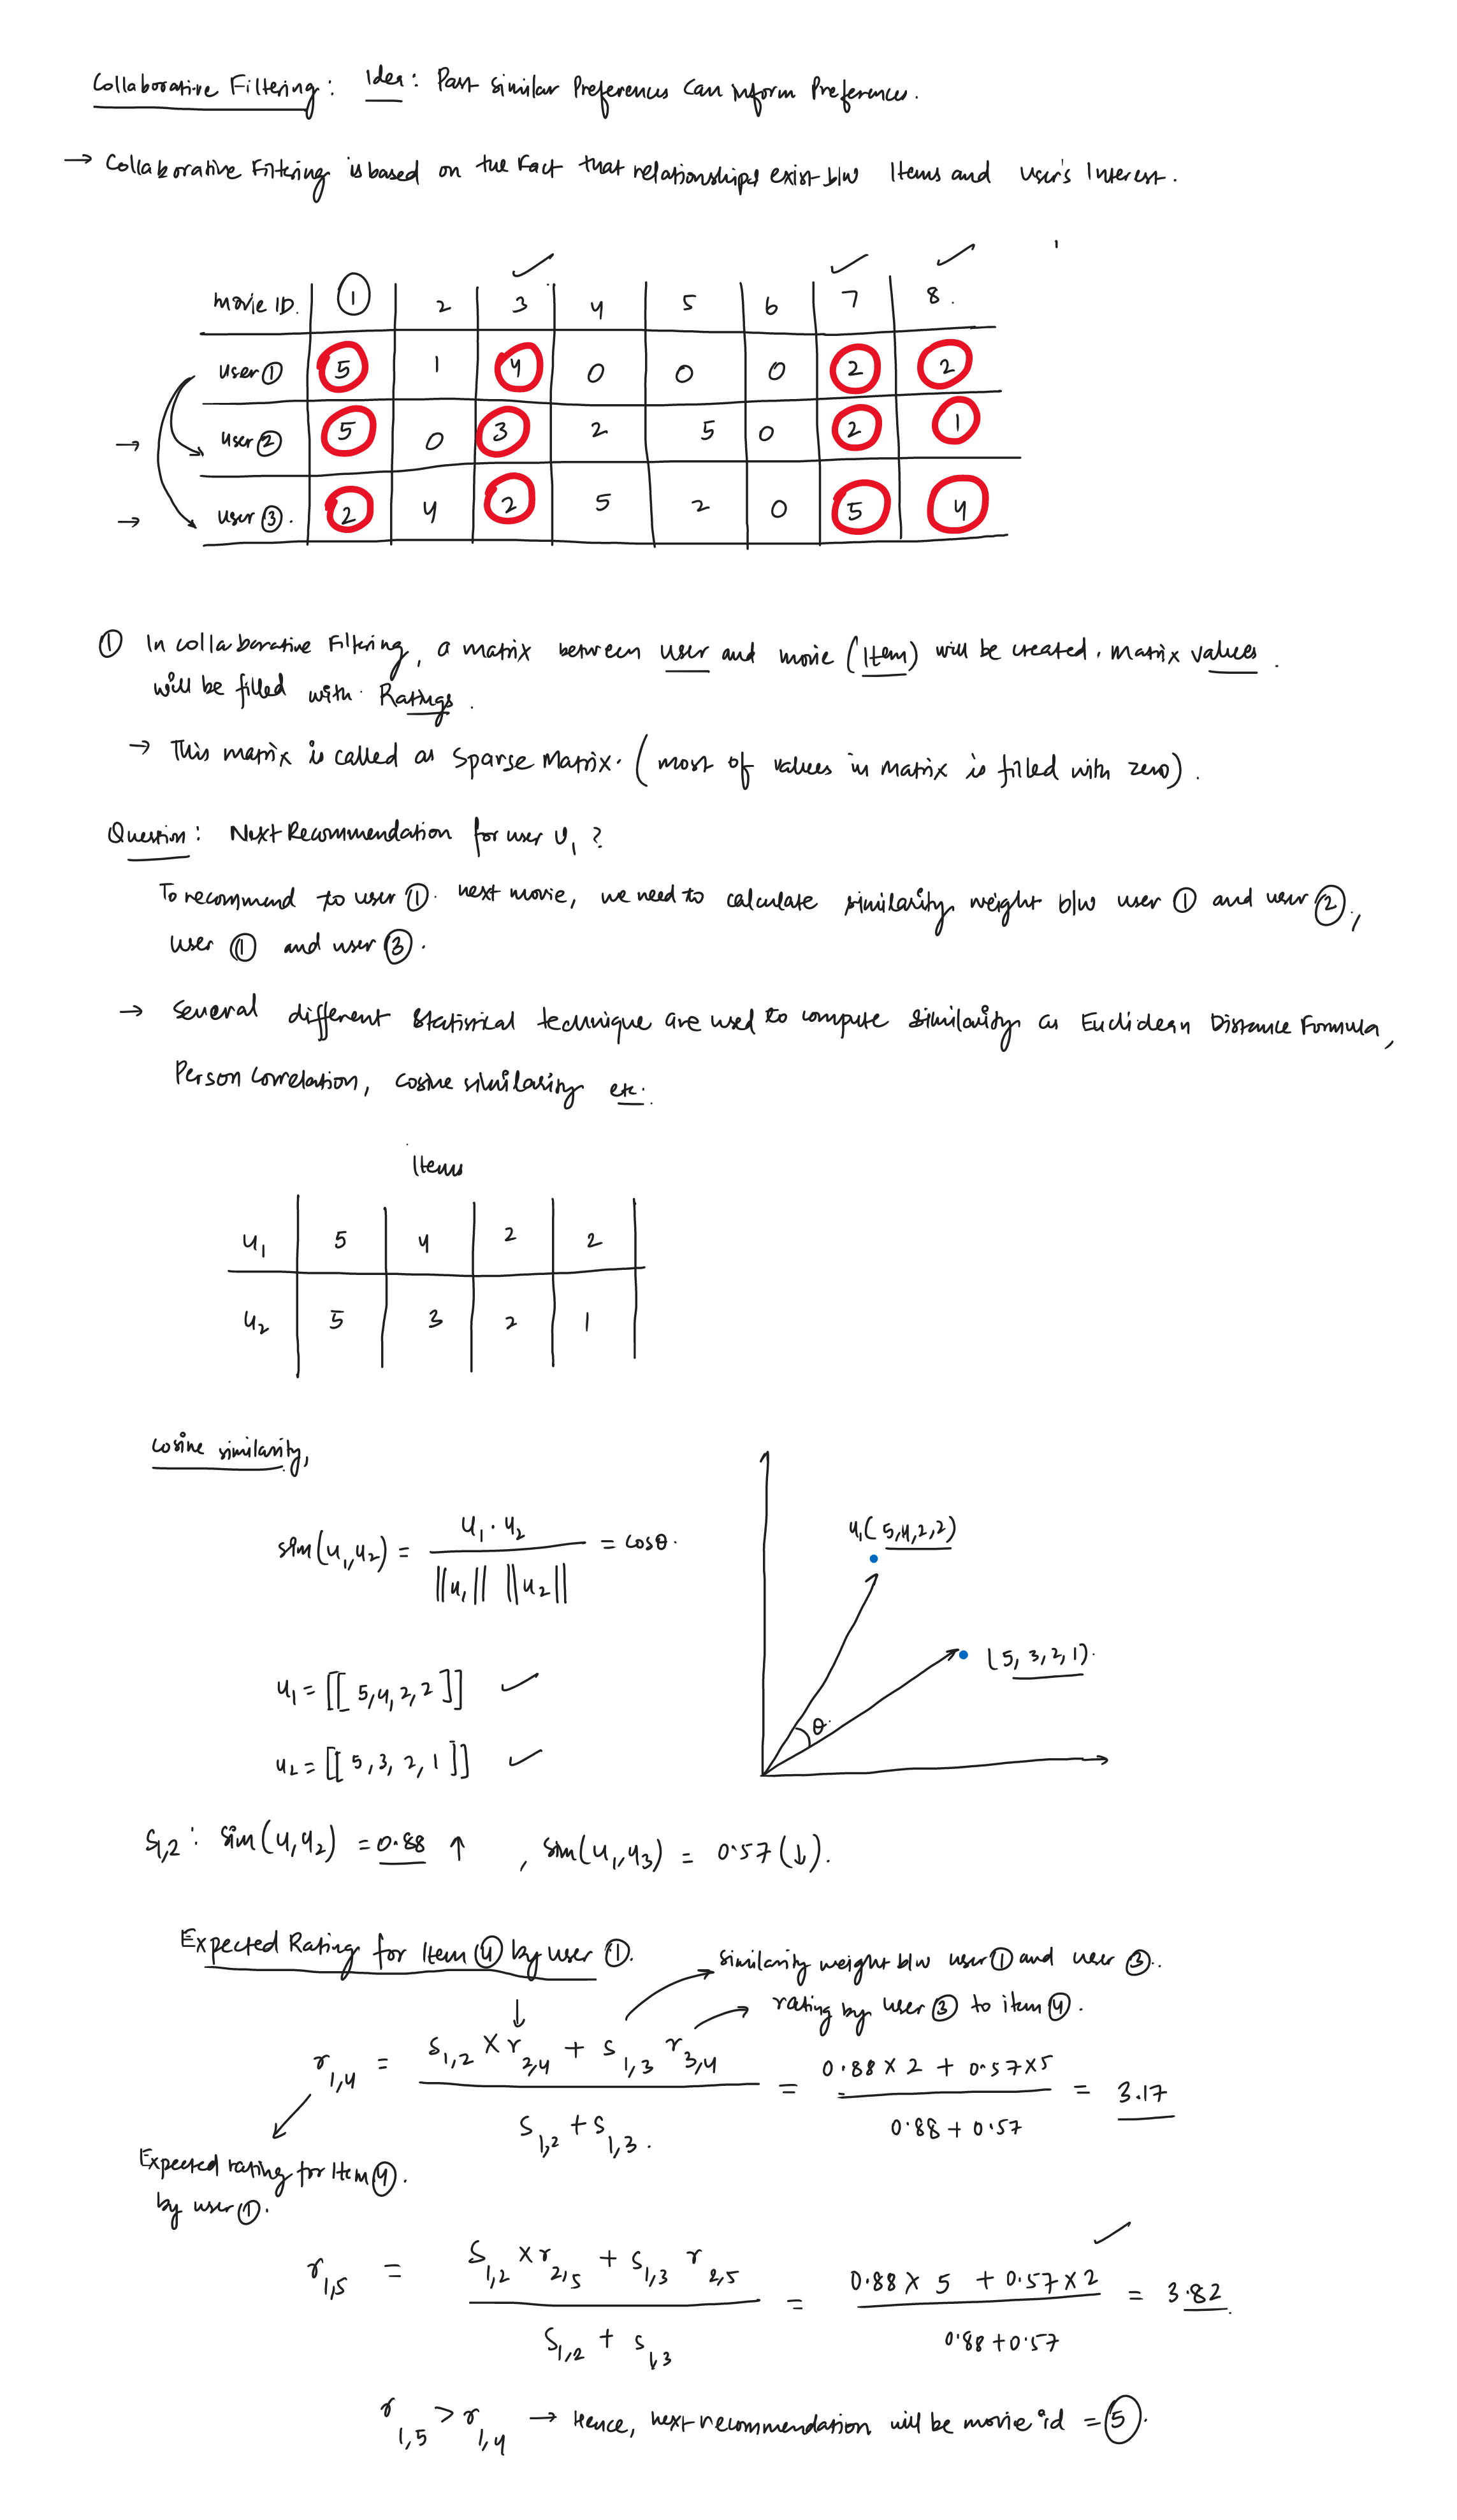 Collaborative Filtering: Idea: Past similar Preferences Can inform Preferences.
→ Collaborative Filtering is based on the fact that relationships exist b/w Items and user's Interest.
movie ID. ① 2 3 4 5 6 7 8.
user① 5 1 4 0 0 0 2 2
→ user② 5 0 3 2 5 0 2 1
→ user③. 2 4 2 5 2 0 5 4
① In collaborative Filtering, a matrix between user and movie (Item) will be created. Matrix values
will be filled with Ratings.
→ This matrix is called as Sparse Matrix. (most of values in matrix is filled with zero).
Question: Next Recommendation for user U₁ ?
To recommend to user ①. next movie, we need to calculate similarity weight b/w user ① and user ②,
user ① and user ③.
→ Several different statistical technique are used to compute similarity as Euclidean Distance Formula,
Person Correlation, Cosine similarity etc.
Items
u₁ 5 4 2 2
u₂ 5 3 2 1
cosine similarity,
sim(u₁,u₂) = u₁ . u₂ / ||u₁|| ||u₂|| = cosθ.
u₁( 5,4,2,2)
(5, 3, 2, 1).
θ.
u₁ = [[ 5,4,2,2 ]] ✓
u₂ = [[ 5,3,2,1 ]] ✓
S₁,₂ : Sim(u,u₂) = 0.88 ↑ , sim(u₁,u₃) = 0.57 (↓).
Expected Rating for Item ④ by user ①.
similarity weight b/w user ① and user ③.
rating by user ③ to item ④.
r₁,₄ = S₁,₂ × r₂,₄ + S₁,₃ r₃,₄ / S₁,₂ + S₁,₃. = 0.88 × 2 + 0.57×5 / 0.88 + 0.57 = 3.17
Expected rating for Item ④.
by user ①.
r₁,₅ = S₁,₂ × r₂,₅ + S₁,₃ r₂,₅ / S₁,₂ + S₁,₃ = 0.88 × 5 + 0.57 × 2 / 0.88 + 0.57 = 3.82.
r₁,₅ > r₁,₄ → Hence, next recommendation will be movie id = ⑤.